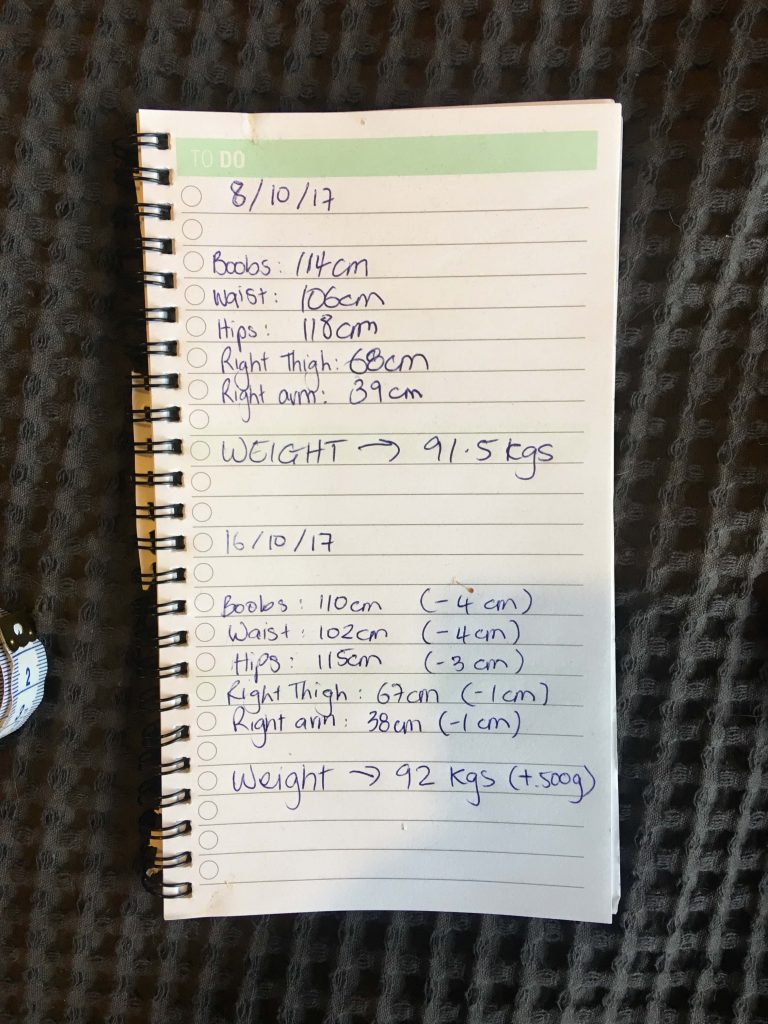 TO DO
8/10/17
Boobs: 114cm
Waist: 106cm
Hips: 118cm
Right Thigh: 68cm
Right arm: 39cm
WEIGHT → 91.5 kgs
16/10/17
Boobs: 110cm (-4 cm)
Waist: 102cm (-4cm)
Hips: 115cm (-3 cm)
Right Thigh: 67cm (-1cm)
Right arm: 38cm (-1cm)
Weight → 92 kgs (+.500g)
2